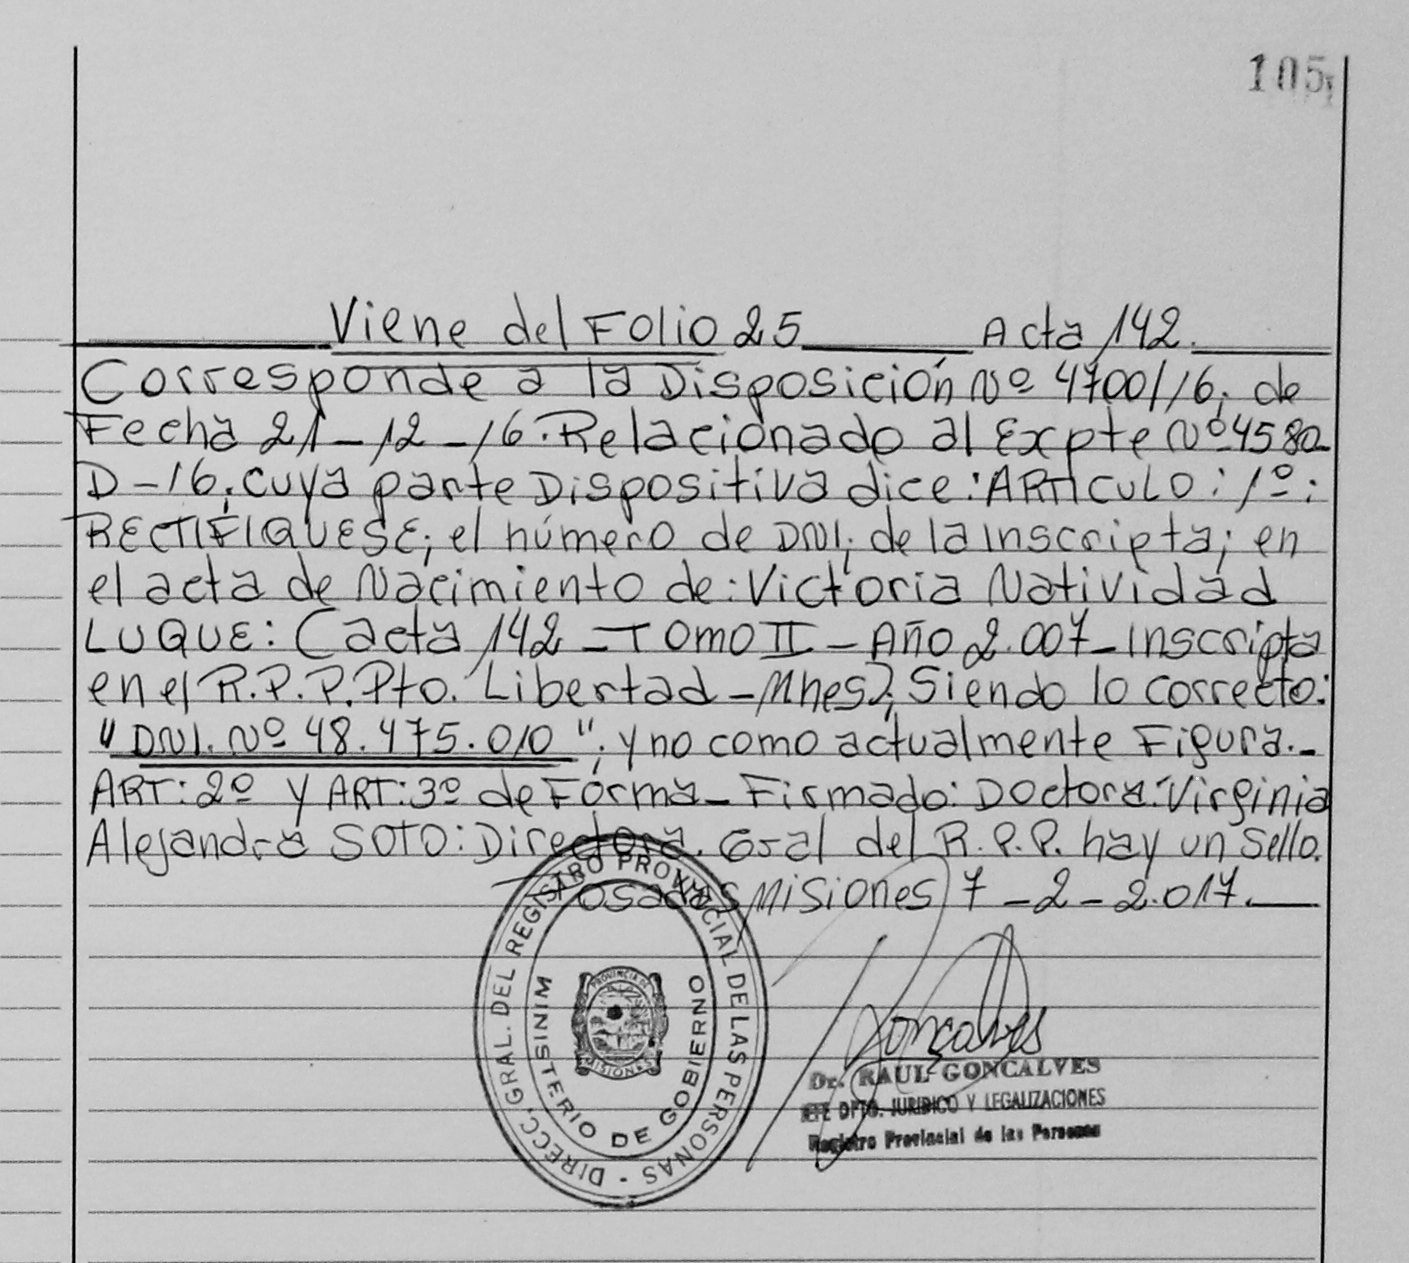 105
Viene del Folio 25 Acta 142.
Corresponde a la Disposición Nº 4700/16; de
Fecha 21-12-16. Relacionado al Expte Nº 4580-
D-16; cuya parte Dispositiva dice: ARTICULO: 1º:
RECTIFIQUESE; el número de DNI; de la inscripta; en
el acta de Nacimiento de: Victoria Natividad
LUQUE: (acta 142 - TOMO II - Año 2.007 - Inscripta
en el R.P.P. Pto. Libertad - Mnes); Siendo lo correcto:
"DNI. Nº 48.475.010"; y no como actualmente Figura.-
ART: 2º y ART: 3º de Forma - Firmado: Doctora: Virginia
Alejandra SOTO: Directora. Gral del R.P.P. hay un Sello.
Posadas Misiones 7-2-2.017.
DIRECC. GRAL. DEL REGISTRO PROVINCIAL DE LAS PERSONAS -
MINISTERIO DE GOBIERNO
PROVINCIA DE
MISIONES
Goncalves
Dr. RAUL GONCALVES
JEFE DPTO. JURIDICO Y LEGALIZACIONES
Registro Provincial de las Personas